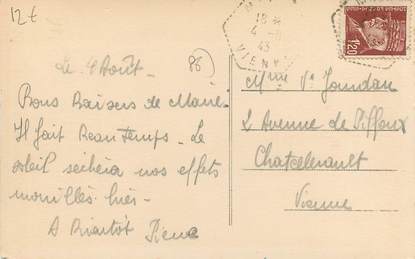 12€
86
18
4 - 8
43
1F20
Le 4 Août -
Bons Baisers de Marie.
Il fait Beau Temps - Le
soleil sèchera nos effets
mouillés hier -
A Biantôt Pierre
Mme Ve Jourdan
2 Avenue de Piffoux
Chatellerault
Vienne